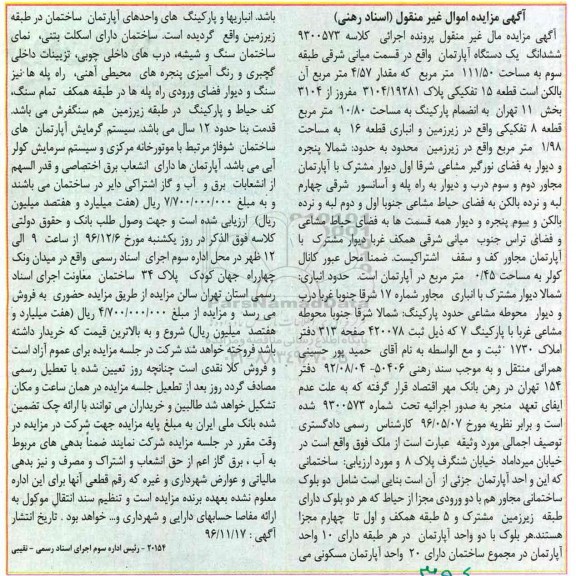 آگهی مزایده اموال غیر منقول (اسناد رهنی)
آگهی مزایده مال غیر منقول پرونده اجرائی کلاسه ۹۳۰۰۵۷۳
ششدانگ یک دستگاه آپارتمان واقع در قسمت میانی شرقی طبقه
سوم به مساحت ۱۱۱/۵۰ متر مربع که مقدار ۴/۵۷ متر مربع آن
بالکن است قطعه ۱۵ تفکیکی پلاک ۳۱۰۴/۱۹۲۸۱ مفروز از ۳۱۰۴
بخش ۱۱ تهران به انضمام پارکینگ به مساحت ۱۰/۸۰ متر مربع
قطعه ۸ تفکیکی واقع در زیرزمین و انباری قطعه ۱۶ به مساحت
۱/۹۸ متر مربع واقع در زیرزمین محدود به حدود: شمالا پنجره
و دیوار به فضای نورگیر مشاعی شرقا اول دیوار مشترک با آپارتمان
مجاور دوم و سوم درب و دیوار به راه پله و آسانسور شرقی چهارم
لبه و نرده بالکن به فضای حیاط مشاعی جنوبا اول و دوم لبه و نرده
بالکن و سوم پنجره و دیوار همه قسمت ها به فضای حیاط مشاعی
و فضای تراس جنوب میانی شرقی همکف غربا دیوار مشترک با
آپارتمان مجاور کف و سقف اشتراکیست. ضمنا محل عبور کانال
کولر به مساحت ۰/۴۵ متر مربع در آپارتمان است. حدود انباری:
شمالا دیوار مشترک با انباری مجاور شماره ۱۷ شرقا جنوبا غربا درب
و دیوار محوطه مشاعی حدود پارکینگ: شمالا شرقا جنوبا محوطه
مشاعی غربا با پارکینگ ۷ که ذیل ثبت ۴۲۰۰۷۸ صفحه ۳۱۳ دفتر
املاک ۱۷۳۰ ثبت و مع الواسطه به نام آقای حمید پور میر
همرائی منتقل و به موجب سند رهنی ۵۰۴۰۶- ۹۲/۰۸/۰۴ دفتر
۱۵۴ تهران در رهن بانک مهر اقتصاد قرار گرفته که به علت عدم
ایفای تعهد منجر به صدور اجرائیه تحت شماره ۹۳۰۰۵۷۳ شده
است و برابر نظریه مورخ ۹۶/۰۵/۰۷ کارشناس رسمی دادگستری
توصیف اجمالی مورد وثیقه عبارت است از ملک فوق واقع است در
خیابان میرداماد خیابان شنگرف پلاک ۸ و مورد ارزیابی: ساختمانی
که این و احد آپارتمان جزئی از آن است بنایی است شامل دو بلوک
ساختمانی مجاور هم با دو ورودی مجزا از حیاط که هر دو بلوک دارای
طبقه زیرزمین مشترک و ۵ طبقه همکف و اول تا چهارم مجزا
هستند.هر بلوک با دو واحد آپارتمان در هر طبقه دارای ۱۰ واحد
آپارتمان در مجموع ساختمان دارای ۲۰ واحد آپارتمان مسکونی می
باشد. انباریها و پارکینگ های واحدهای آپارتمان ساختمان در طبقه
زیرزمین واقع گردیده است. ساختمان دارای اسکلت بتنی، نمای
ساختمان سنگ و شیشه، درب های داخلی چوبی، تزیینات داخلی
گچبری و رنگ آمیزی پنجره های محیطی آهنی، راه پله ها نیز
سنگ و دیوار فضای ورودی راه پله ها در طبقه همکف تمام سنگ،
کف حیاط و پارکینگ در طبقه زیرزمین هم سنگفرش می باشد.
قدمت بنا حدود ۱۲ سال می باشد. سیستم گرمایش آپارتمان های
ساختمان شوفاژ مرتبط با موتورخانه مرکزی و سیستم سرمایش کولر
آبی می باشد. آپارتمان ها دارای انشعاب برق اختصاصی و قدر السهم
از انشعابات برق و آب و گاز اشتراکی دایر در ساختمان می باشند
و به مبلغ ۷/۷۰۰/۰۰۰/۰۰۰ ریال (هفت میلیارد و هفتصد میلیون
ریال) ارزیابی شده است و جهت وصول طلب بانک و حقوق دولتی
کلاسه فوق الذکر در روز یکشنبه مورخ ۹۶/۱۲/۶ از ساعت ۹ الی
۱۲ ظهر در محل اداره سوم اجرای اسناد رسمی واقع در میدان ونک
چهارراه جهان کودک پلاک ۳۴ ساختمان معاونت اجرای اسناد
رسمی استان تهران سالن مزایده از طریق مزایده حضوری به فروش
می رسد و مزایده از مبلغ ۷/۷۰۰/۰۰۰/۰۰۰ ریال (هفت میلیارد و
هفتصد میلیون ریال) شروع و به بالاترین قیمت که خریدار داشته
باشد فروخته خواهد شد شرکت در جلسه مزایده برای عموم آزاد است
و فروش کلا نقدی است چنانچه روز تعیین شده با تعطیل رسمی
مصادف گردد روز بعد از تطعیل جلسه مزایده در همان ساعت و مکان
تشکیل خواهد شد طالبین و خریداران می توانند با ارائه چک تضمین
شده بانک ملی ایران به مبلغ پایه مزایده جهت شرکت در مزایده در
وقت مقرر در جلسه مزایده شرکت نمایند ضمناً بدهی های مربوط
به آب ، برق گاز اعم از حق انشعاب و اشتراک و مصرف و نیز بدهی
مالیاتی و عوارض شهرداری و غیره که رقم قطعی آنها برای این اداره
معلوم نشده بعهده برنده مزایده است و تنظیم سند انتقال موکول به
ارائه مفاصا حسابهای دارایی و شهرداری و... خواهد بود . تاریخ انتشار
آگهی : ۹۶/۱۱/۱۷
۲۰۱۵۴ - رئیس اداره سوم اجرای اسناد رسمی - نقیبی